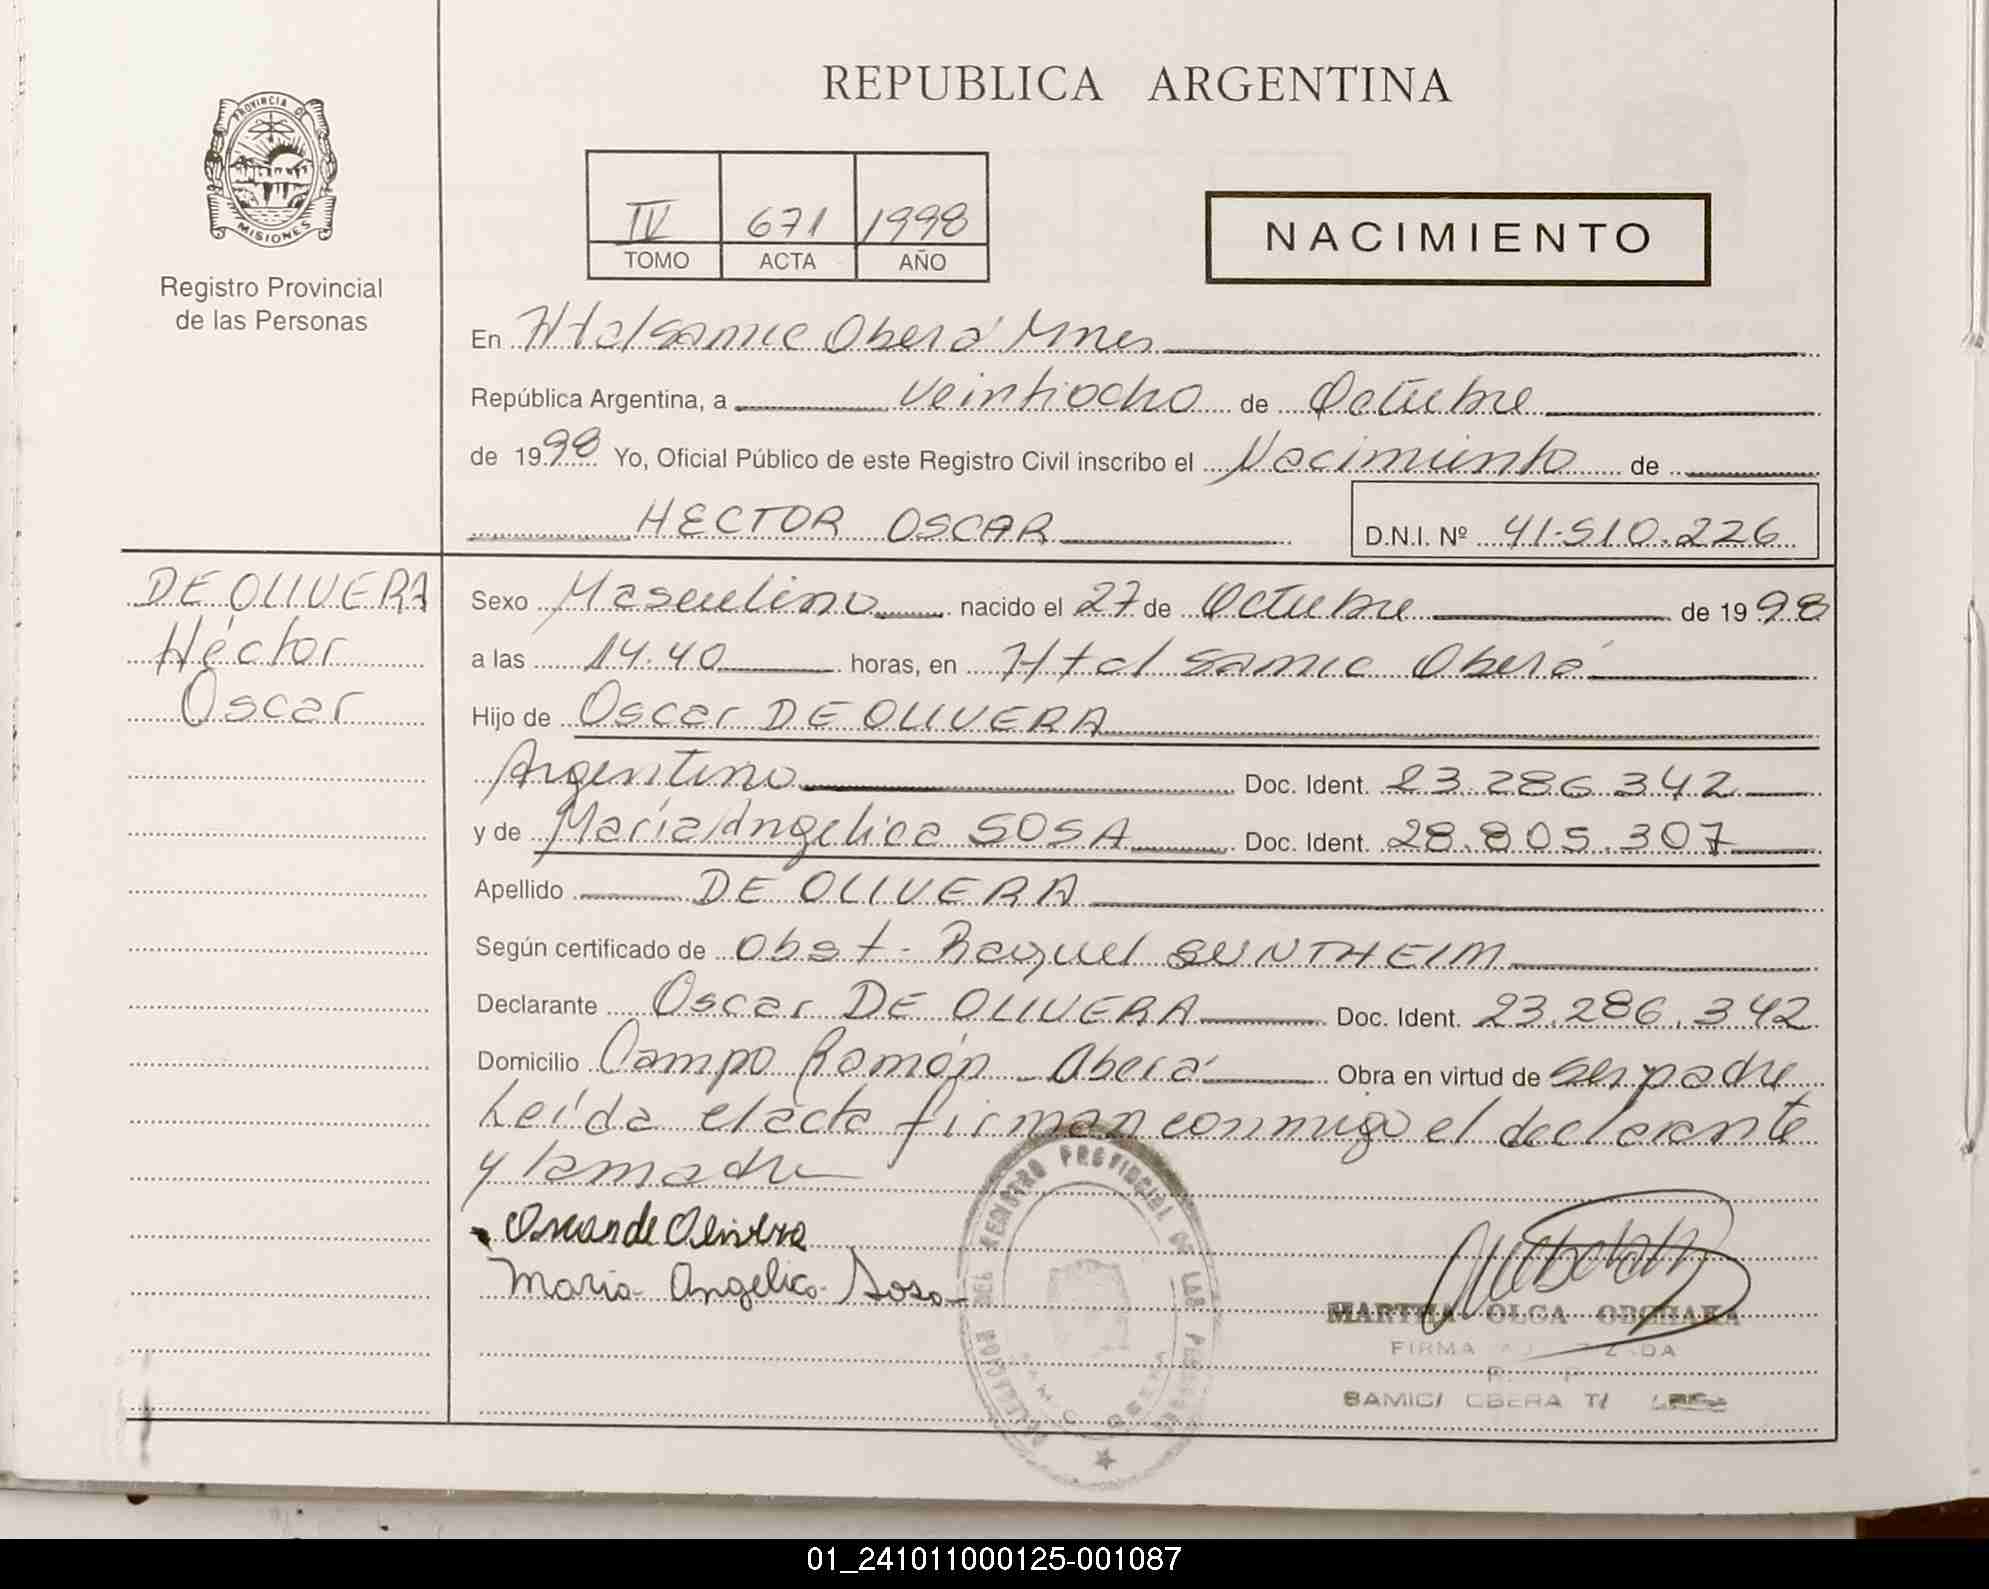 PROVINCIA DE
MISIONES
Registro Provincial
de las Personas
REPUBLICA ARGENTINA
IV 671 1998
TOMO ACTA AÑO
NACIMIENTO
En Htal Samic Oberá Mnes
República Argentina, a veintiocho de Octubre
de 1998 Yo, Oficial Público de este Registro Civil inscribo el Nacimiento de
HECTOR OSCAR D.N.I. Nº 41.510.226
DE OLIVERA
Héctor
Oscar
Sexo Masculino nacido el 27 de Octubre de 1998
a las 14.40 horas, en Htal Samic Oberá
Hijo de Oscar DE OLIVERA
Argentino Doc. Ident. 23.286.342
y de María Angelica SOSA Doc. Ident. 28.805.307
Apellido DE OLIVERA
Según certificado de Obst. Raquel SUNTHEIM
Declarante Oscar DE OLIVERA Doc. Ident. 23.286.342
Domicilio Campo Ramón Oberá Obra en virtud de ser padre
Leída el acta firman conmigo el declarante
y la madre
Oscar de Olivera
Maria Angelica Sosa
REGISTRO PROVINCIAL DE LAS
MARTHA OLGA
FIRMA
SAMIC/ OBERA
01_241011000125-001087